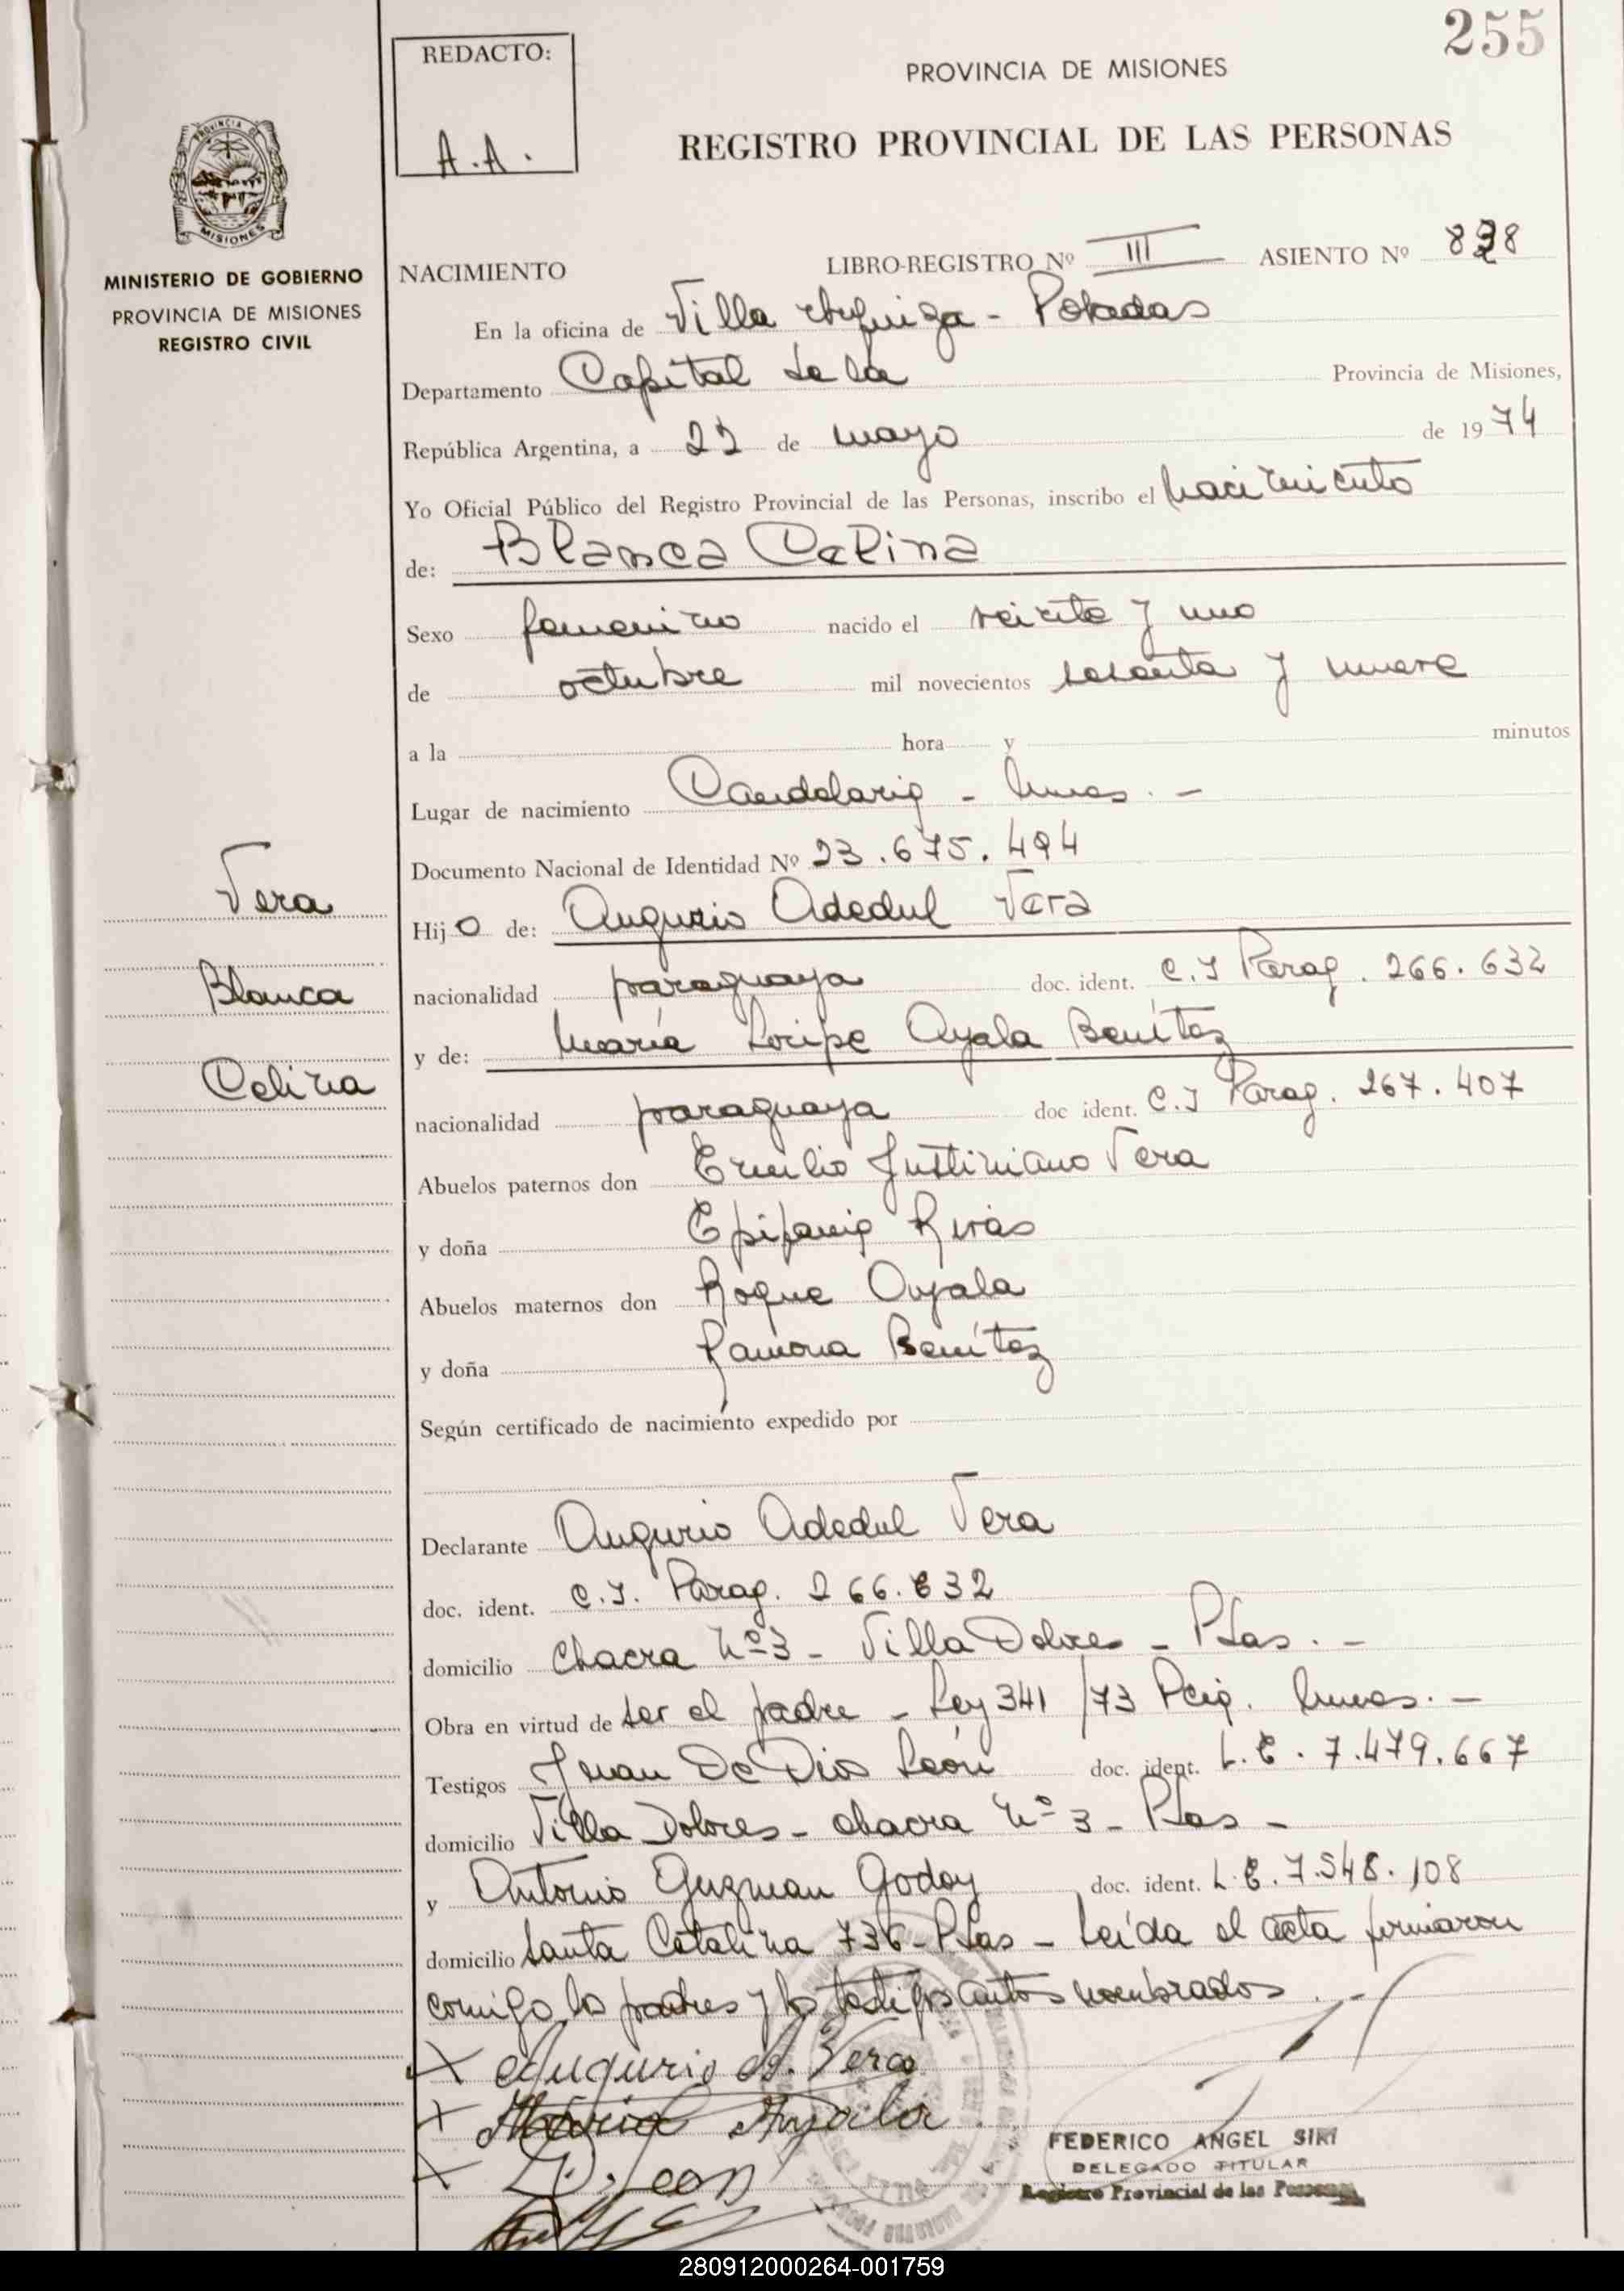 255
REDACTO:
A.A.
PROVINCIA DE MISIONES
REGISTRO PROVINCIAL DE LAS PERSONAS
PROVINCIA DE
MISIONES
MINISTERIO DE GOBIERNO
PROVINCIA DE MISIONES
REGISTRO CIVIL
NACIMIENTO LIBRO-REGISTRO Nº III ASIENTO Nº
En la oficina de Villa Urquiza - Posadas
Departamento Capital de la Provincia de Misiones,
República Argentina, a 22 de mayo de 1974
Yo Oficial Público del Registro Provincial de las Personas, inscribo el nacimiento
de: Blanca Celina
Sexo femenino nacido el veinte y uno
de octubre mil novecientos sesenta y nueve
a la hora y minutos
Lugar de nacimiento Candelaria - Mnes. -
Documento Nacional de Identidad Nº 23.675.494
Hijo de: Augurio Adedul Vera
nacionalidad paraguaya doc. ident. C.I Parag. 266.632
y de: María Ayala Benítez
nacionalidad paraguaya doc ident. C.I Parag. 267.407
Abuelos paternos don Emilio Justiniano Vera
y doña Epifania Rivas
Abuelos maternos don Roque Ayala
y doña Ramona Benítez
Vera
Blanca
Celina
Según certificado de nacimiento expedido por
Declarante Augurio Adedul Vera
doc. ident. C.I. Parag. 266.632
domicilio Chacra Nº 3 - Villa Dolores - Pdas. -
Obra en virtud de ser el padre - Ley 341/73 Pcia. Mnes. -
Testigos Juan De Dios León doc. ident. L.E. 7.479.667
domicilio Villa Dolores - chacra Nº 3 - Pdas -
y Antonio Guzman Godoy doc. ident. L.E. 7.548.108
domicilio Santa Catalina 736 - Pdas - Leída el acta firmaron
comigo los padres y los testigos antes nombrados. -
x Augurio A. Vera
+ María Ayala
x J.D. Leon
FEDERICO ANGEL SIRI
DELEGADO TITULAR
Registro Provincial de las Personas
280912000264-001759